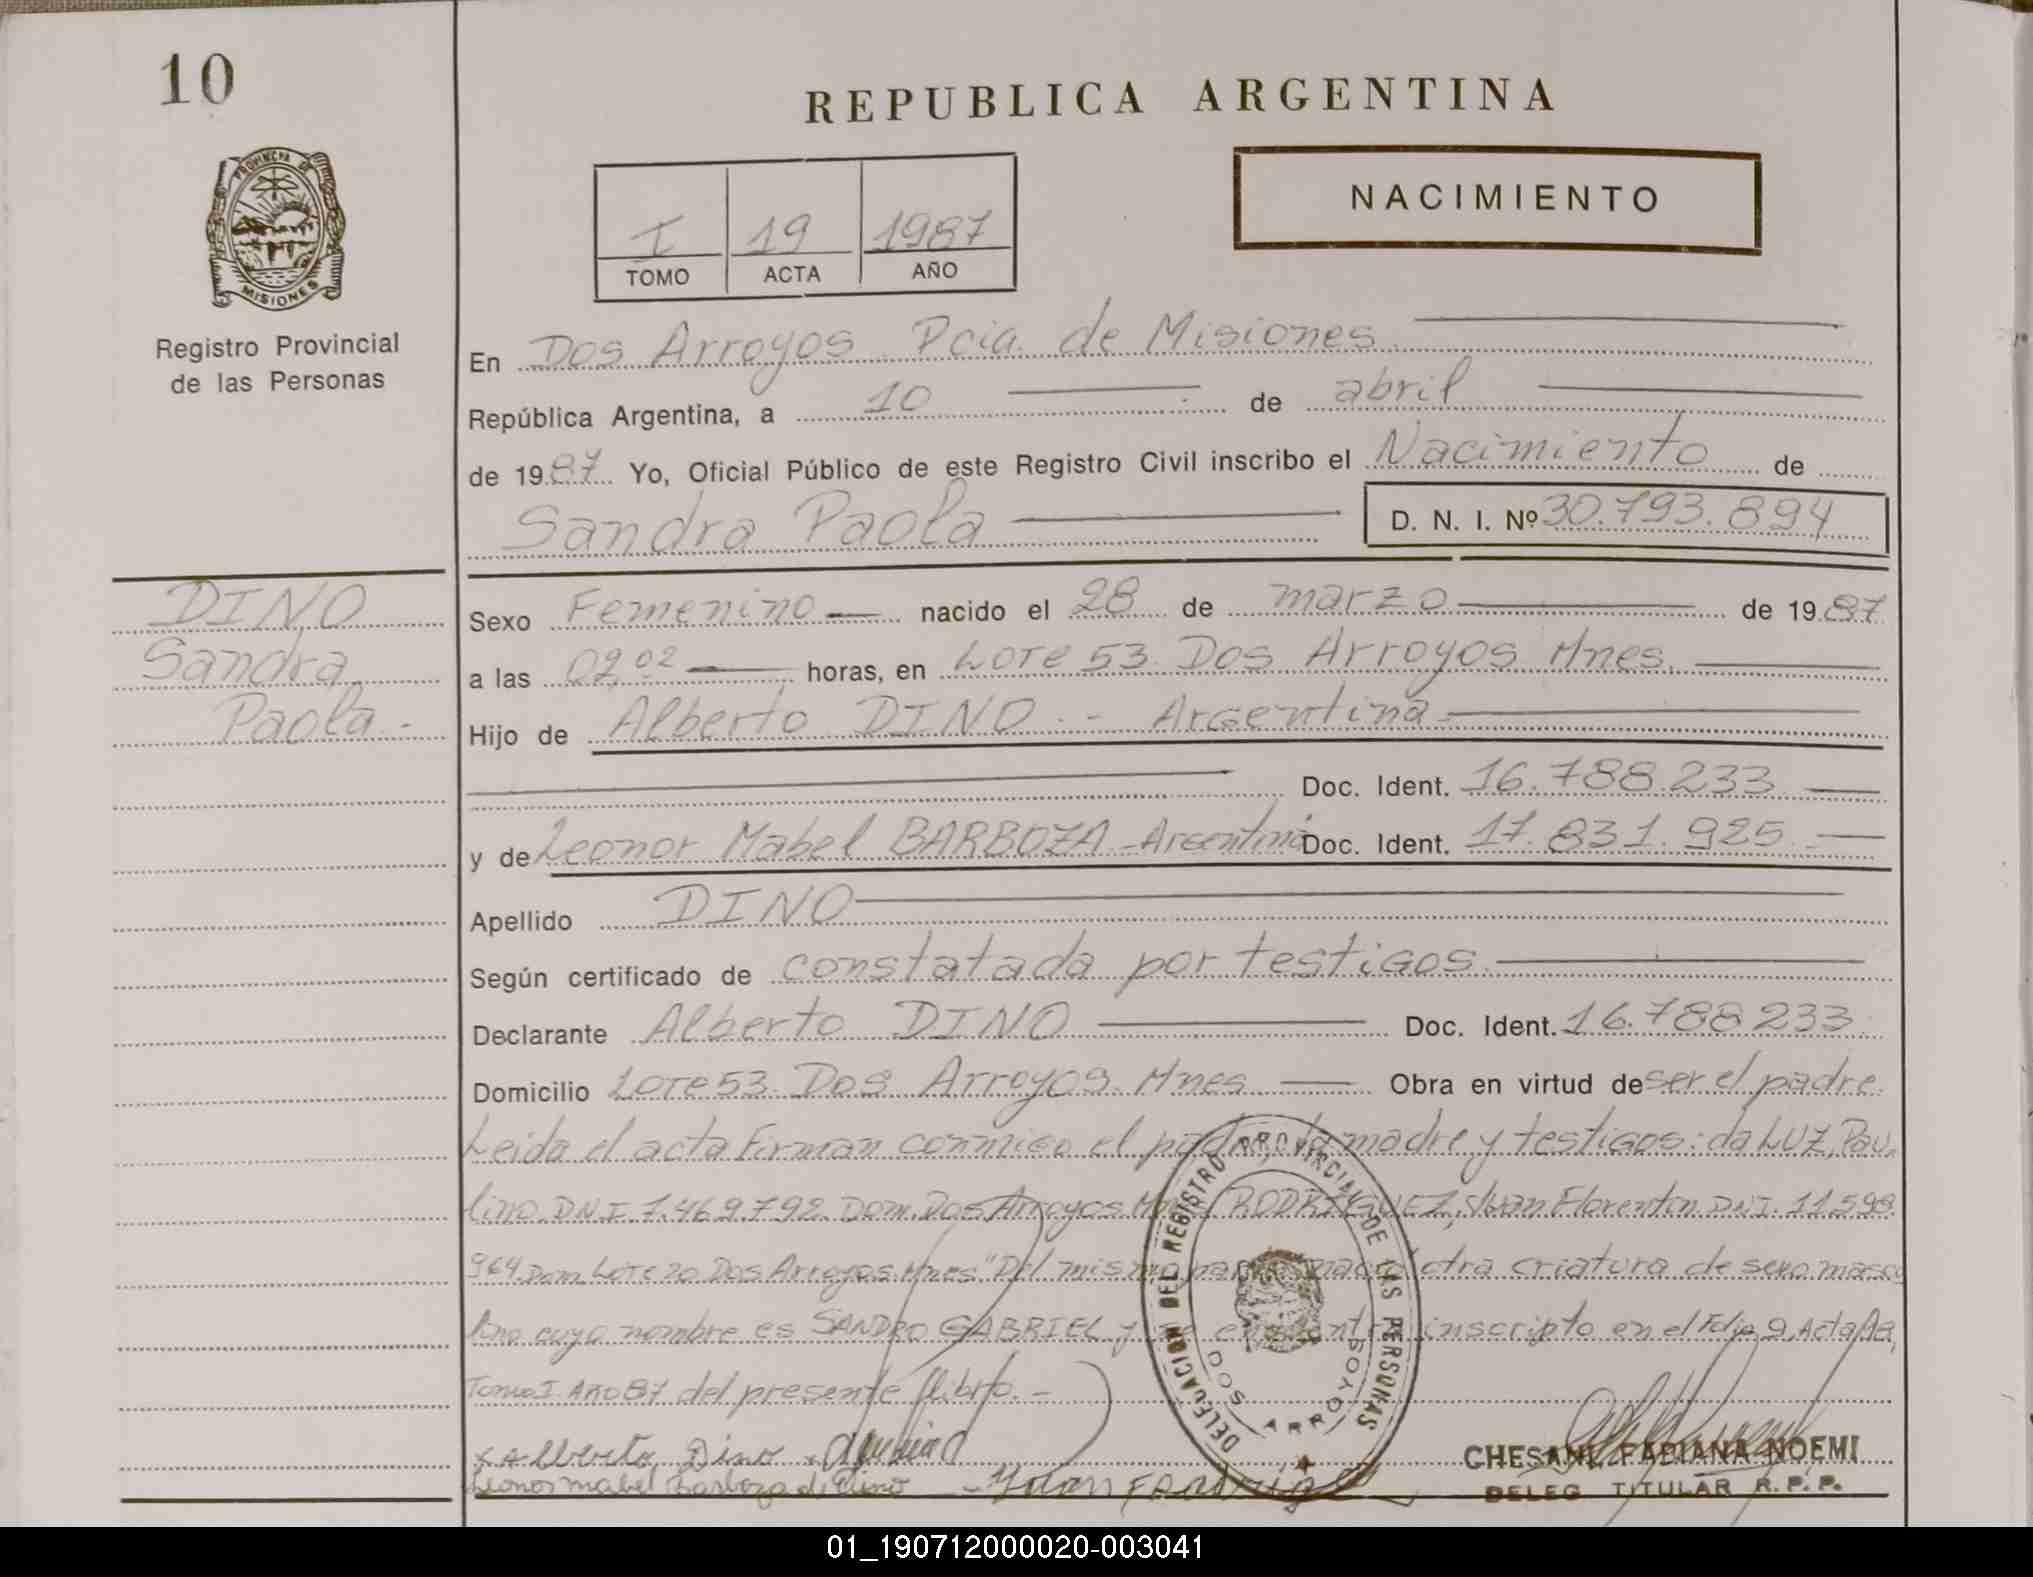 10
REPUBLICA ARGENTINA
NACIMIENTO
PROVINCIA DE
MISIONES
I 19 1987
TOMO ACTA AÑO
Registro Provincial
de las Personas
En Dos Arroyos Pcia. de Misiones
República Argentina, a 10 de abril
de 1987 Yo, Oficial Público de este Registro Civil inscribo el Nacimiento de
Sandra Paola D. N. I. Nº 30.793.894
DINO
Sandra
Paola.-
Sexo Femenino nacido el 28 de marzo de 1987
a las 02,02 horas, en Lote 53 Dos Arroyos Mnes.
Hijo de Alberto DINO.- Argentina
Doc. Ident. 16.788.233
y de Leonor Mabel BARBOZA-Argentina Doc. Ident. 17.831.925
Apellido DINO
Según certificado de constatada por testigos
Declarante Alberto DINO Doc. Ident. 16.788.233
Domicilio Lote 53 Dos Arroyos Mnes Obra en virtud de ser el padre.
Leída el acta Firman conmigo el padre, la madre y testigos: da LUZ, Pau
lino DNI 7.469.792 Dom. Dos Arroyos Mnes RODRIGUEZ, Juan Florentin DNI. 11.598.
964 Dom Lote 20 Dos Arroyos Mnes "Del mismo parto nació otra criatura de sexo mascu
lino cuyo nombre es SANDRO GABRIEL y se encuentra inscripto en el Folio 9, Acta
Tomo I Año 87 del presente libro.-
DELEGACION DEL REGISTRO PROVINCIAL DE LAS PERSONAS
DOS ARROYOS
Alberto Dino
Leonor mabel Barboza de Dino
Juan
CHESANI FABIANA NOEMI
DELEG TITULAR R.P.P.
01_190712000020-003041